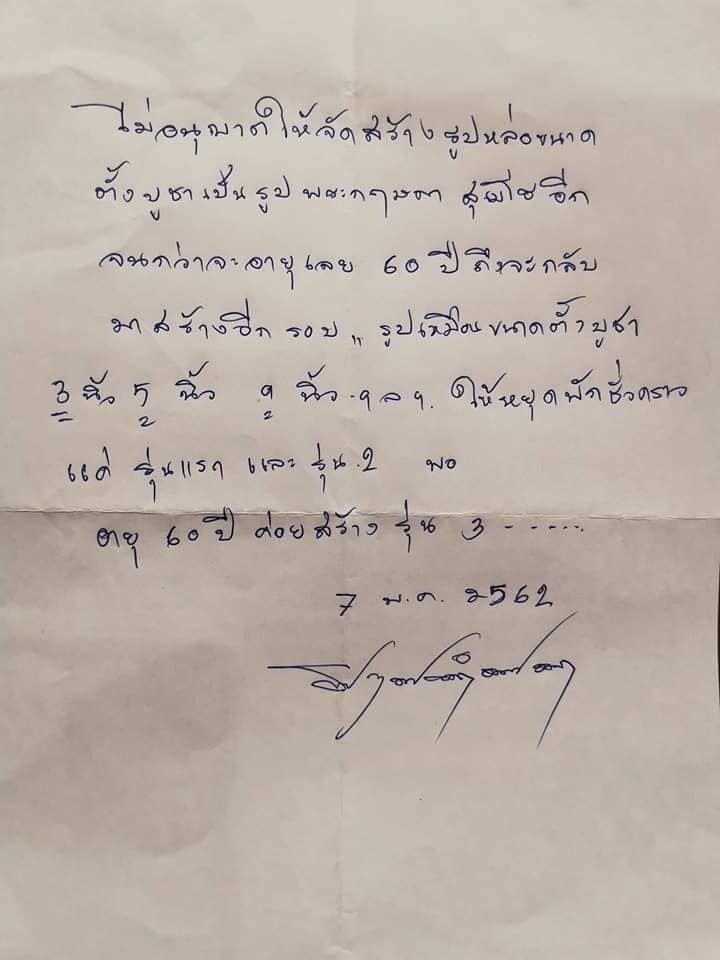 ไม่อนุญาตให้จัดสร้างรูปหล่อขนาด
ตั้งบูชาเป็นรูป พระกฤษดา สุเมโธ อีก
จนกว่าจะอายุเลย 60 ปี ถึงจะกลับ
มาสร้างอีก รอบ " รูปเหมือนขนาดตั้งบูชา
3 นิ้ว 5 นิ้ว 9 นิ้ว ฯลฯ. ให้หยุดพักชั่วคราว
แค่ รุ่นแรก และ รุ่น.2 พอ
อายุ 60 ปี ค่อยสร้าง รุ่น 3 - - - - - -
7 พ.ค. 2562